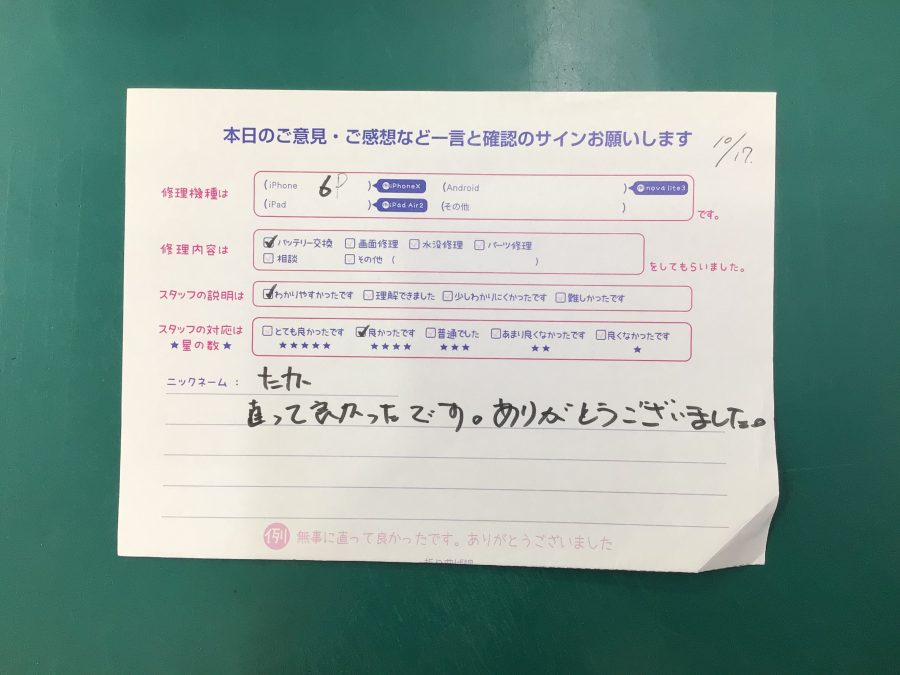 本日のご意見・ご感想など一言と確認のサインお願いします
10/17.
修理機種は (iPhone 6P ) 例iPhoneX (Android ) 例nova lite3
(iPad ) 例iPad Air2 (その他 ) です。
修理内容は ☑バッテリー交換 □画面修理 □水没修理 □パーツ修理
□相談 □その他 ( ) をしてもらいました。
スタッフの説明は ☑わかりやすかったです □理解できました □少しわかりにくかったです □難しかったです
スタッフの対応は □とても良かったです ☑良かったです □普通でした □あまり良くなかったです □良くなかったです
★星の数★ ★★★★★ ★★★★ ★★★ ★★ ★
ニックネーム： たカ
直って良かったです。ありがとうございました。
例 無事に直って良かったです。ありがとうございました